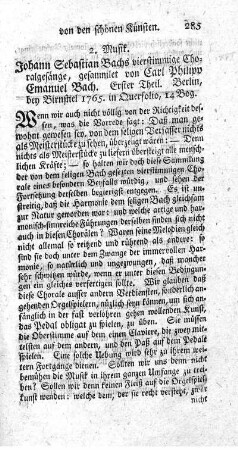 von den schönen Künsten. 285
2. Musik.
Johann Sebastian Bachs vierstimmige Cho-
ralgesänge, gesammlet von Carl Philipp
Emanuel Bach. Erster Theil. Berlin,
bey Birnstiel 1765. in Querfolio, 14 Bog.
Wenn wir auch nicht völlig von der Richtigkeit des-
sen, was die Vorrede sagt: Daß man ge-
wohnt gewesen sey, von dem seligen Verfasser nichts
als Meisterstücke zu sehen, überzeugt wären: Denn
nichts als Meisterstücke zu liefern übersteigt alle mensch-
lichen Kräfte; — so halten wir doch diese Sammlung
der von dem seligen Bach gesetzten vierstimmigen Cho-
räle eines besondern Beyfalls würdig, und sehen der
Fortsetzung derselben begierigst entgegen. Es ist un-
streitig, daß die Harmonie dem seligen Bach gleichsam
zur Natur geworden war: und welche artige und har-
monisch-sinnreiche Führungen derselben finden sich nicht
auch in diesen Chorälen? Waren seine Melodien gleich
nicht allemal so reitzend und rührend als andere: so
sind sie doch unter dem Zwange der immervollen Har-
monie, so natürlich und ungezwungen, daß mancher
sehr schwitzen würde, wenn er unter diesen Bedingun-
gen ein gleiches verfertigen sollte. Wir glauben daß
diese Choräle ausser andern Verdiensten, vorzüglich an-
gehenden Orgelspielern, nützlich seyn können, um sich an-
fänglich in der fast verlohren gehen wollenden Kunst,
das Pedal obligat zu spielen, zu üben. Sie müssen
die Oberstimme auf dem einen Claviere, die zwey mit-
telsten auf dem andern, und den Baß auf dem Pedale
spielen. Eine solche Uebung wird sehr zu ihrem wei-
tern Fortgange dienen. Sollten wir uns denn nicht
bemühen die Musik in ihrem ganzen Umfange zu trei-
ben? Sollten wir denn keinen Fleiß auf die Orgelspiel-
kunst wenden: welche dem, der sie recht versteht, zwar
nicht